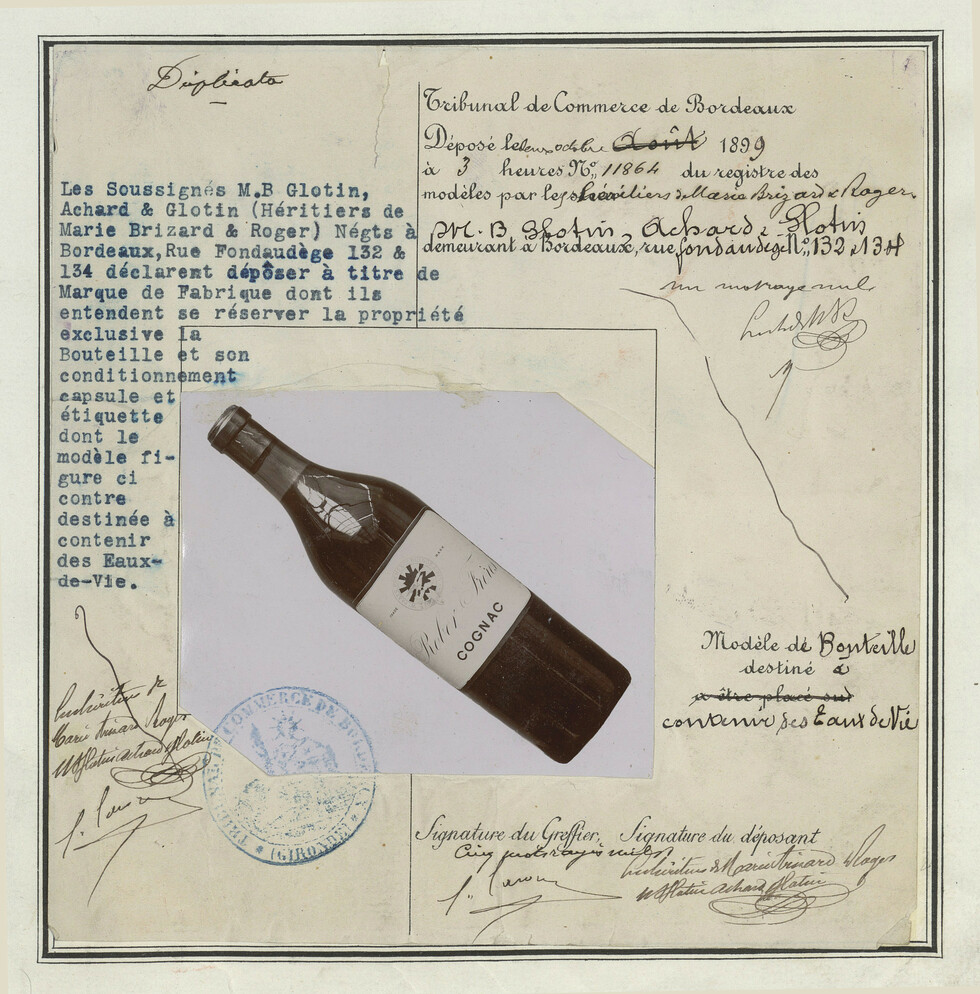 Duplicata
Tribunal de Commerce de Bordeaux
Déposé le deux octobre Août 1899
à 3 heures No. 11864 du registre des
modèles par les héritiers de Marie Brizard & Roger
M. B. Glotin, Achard & Glotin
demeurant à Bordeaux, rue fondaudège No. 132 & 134
un mot rayé nul
Les Soussignés M.B Glotin,
Achard & Glotin (Héritiers de
Marie Brizard & Roger) Négts à
Bordeaux,Rue Fondaudège 132 &
134 déclarent dépôser à titre de
Marque de Fabrique dont ils
entendent se réserver la propriété
exclusive la
Bouteille et son
conditionnement
capsule et
étiquette
dont le
modèle fi-
gure ci
contre
destinée à
contenir
des Eaux-
de-Vie.
COGNAC
Modèle de Bouteille
destiné à
a être placé sur
contenir des Eaux de Vie
Les héritiers de
Marie Brizard & Roger
MB Glotin Achard & Glotin
TRIBUNAL DE COMMERCE DE BORDEAUX
(GIRONDE)
Signature du Greffier, Signature du déposant
Cinq mots rayés nuls
Les héritiers de Marie Brizard & Roger
MB Glotin Achard & Glotin